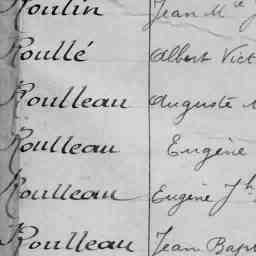 Roulin Jean M
Roullé Albert Vict
Roulleau Auguste
Roulleau Eugène
Roulleau Eugène Jh
Roulleau Jean Bapt